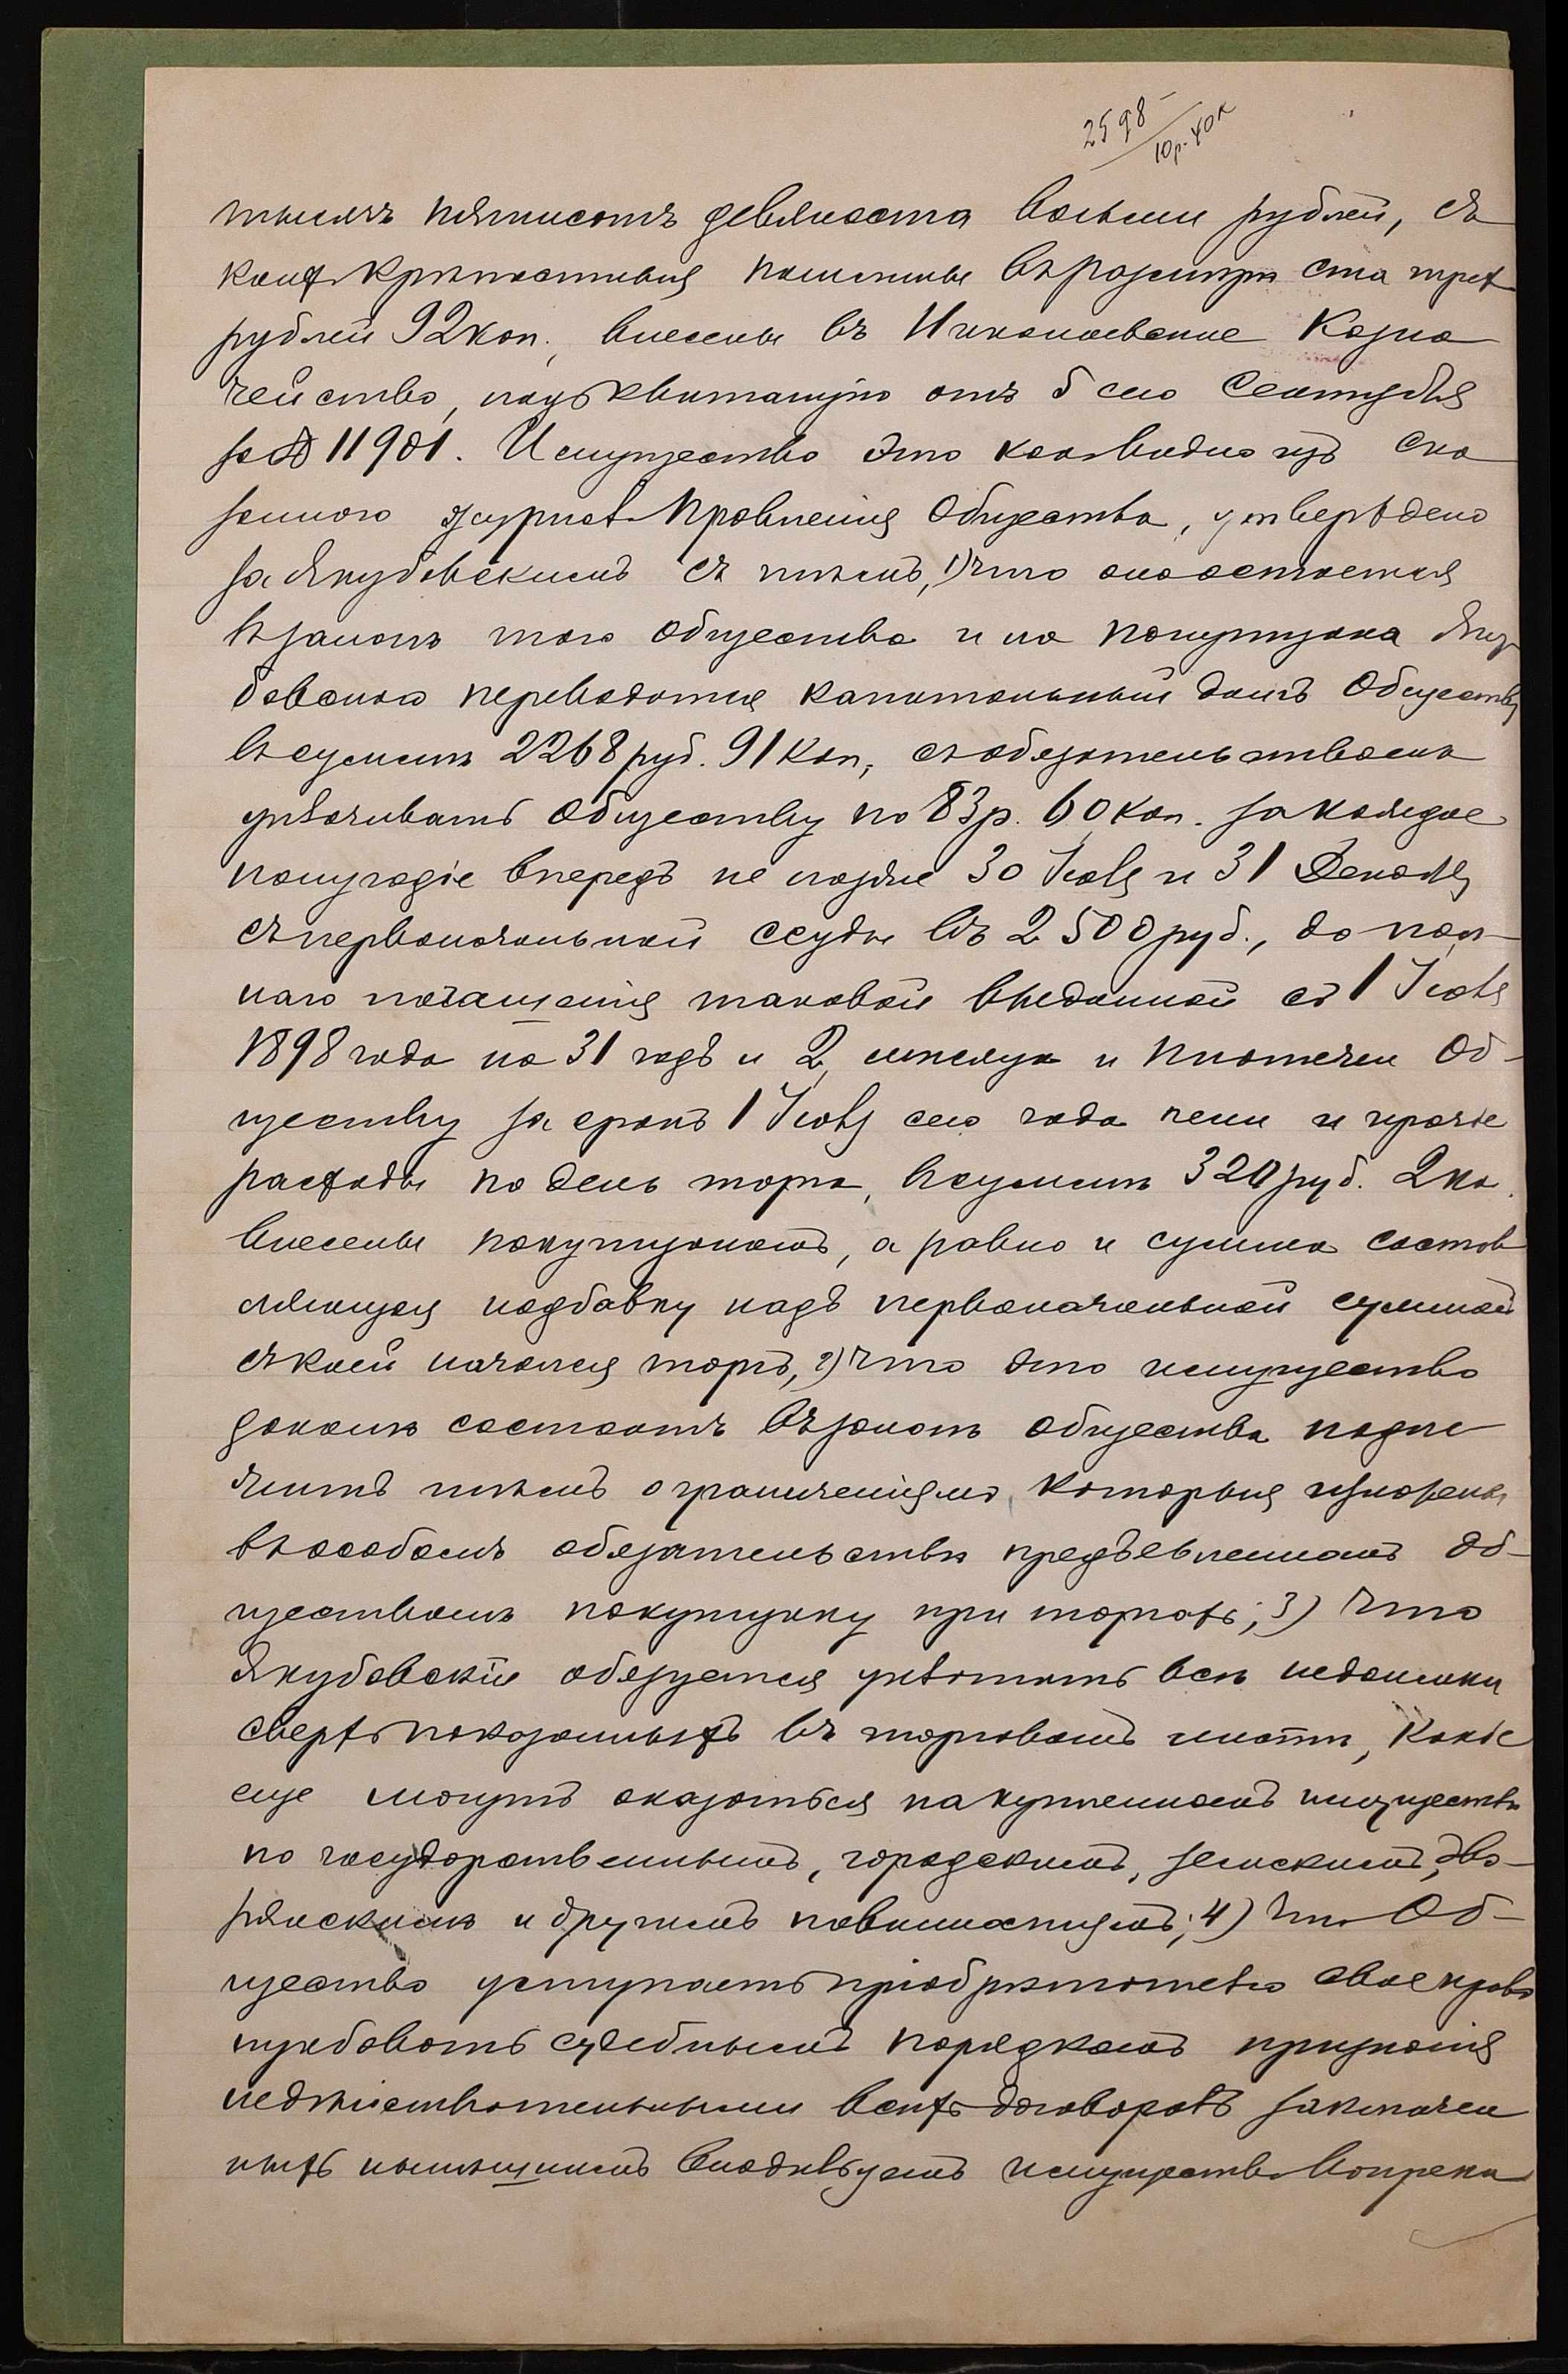 2598
10р. 40к
тысячъ пятисотъ девяноста восьми рублей, съ
коихъ крѣпостныя пошлины въ размѣрѣ ста трехъ
рублей 92 коп., внесены въ Николаевское Казна
чейство, подъ квитанцію отъ 5 сего Сентября
за № 11901. Имущество это какъ видно изъ ска
заннаго журнала Правленія Общества, утверждено
за Якубовскимъ съ тѣмъ, 1) что оно остается
въ залогѣ того общества и на покупщика Яку
бовскаго переводится капитальный долгъ Обществу
въ суммѣ 2268 руб. 91 коп., съ обязательствомъ
уплачивать Обществу по 83 р. 60 коп. за каждое
полугодіе впередъ не позже 30 Іюня и 31 Декабря
съ первоначальной ссуды въ 2500 руб., до пол-
наго погашенія таковой выданной съ 1 Іюля
1898 года на 31 годъ и 2 мѣсяца и платежи Об-
ществу за срокъ 1 Іюля сего года пени и прочіе
расходы по день торга, въ суммѣ 320 руб. 2 ко.
внесены покупщикомъ, а равно и сумма состав
ляющая надбавку надъ первоначальной суммой
съ коей начался торгъ, 2) что это имущество
доколѣ состоитъ въ залогѣ общества подле
житъ тѣмъ ограниченіямъ, которыя изложены
въ особомъ обязательствѣ предъявленномъ Об-
ществомъ покупщику при торгахъ; 3) что
Якубовскій обязуется уплатить всѣ недоимки
сверхъ показанныхъ въ торговомъ листѣ, какіе
еще могутъ оказаться на купленномъ имуществѣ
по государственнымъ, городскимъ, земскимъ, дво-
рянскимъ и другимъ повинностямъ; 4) что Об-
щество уступаетъ пріобрѣтателю свое право
требовать судебнымъ порядкомъ признанія
недѣйствительными всѣхъ договоровъ заключен
ныхъ нынѣшнимъ владѣльцемъ имущества вопреки